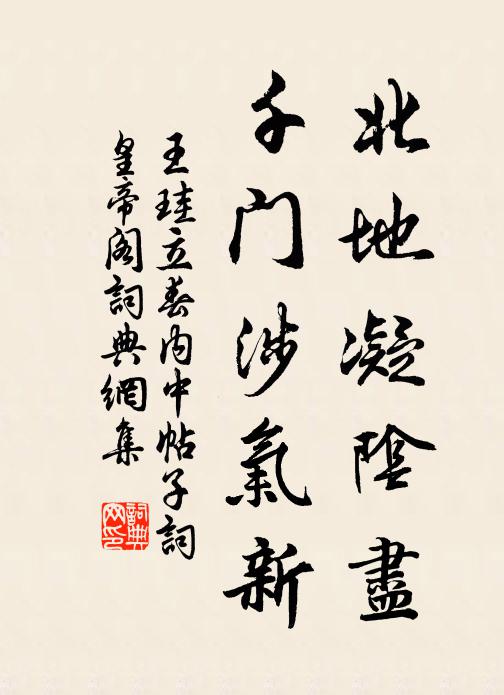 北地凝陰盡
千門淑氣新
王珪立春內中帖子詞
皇帝閣詞典網集
詞典网印